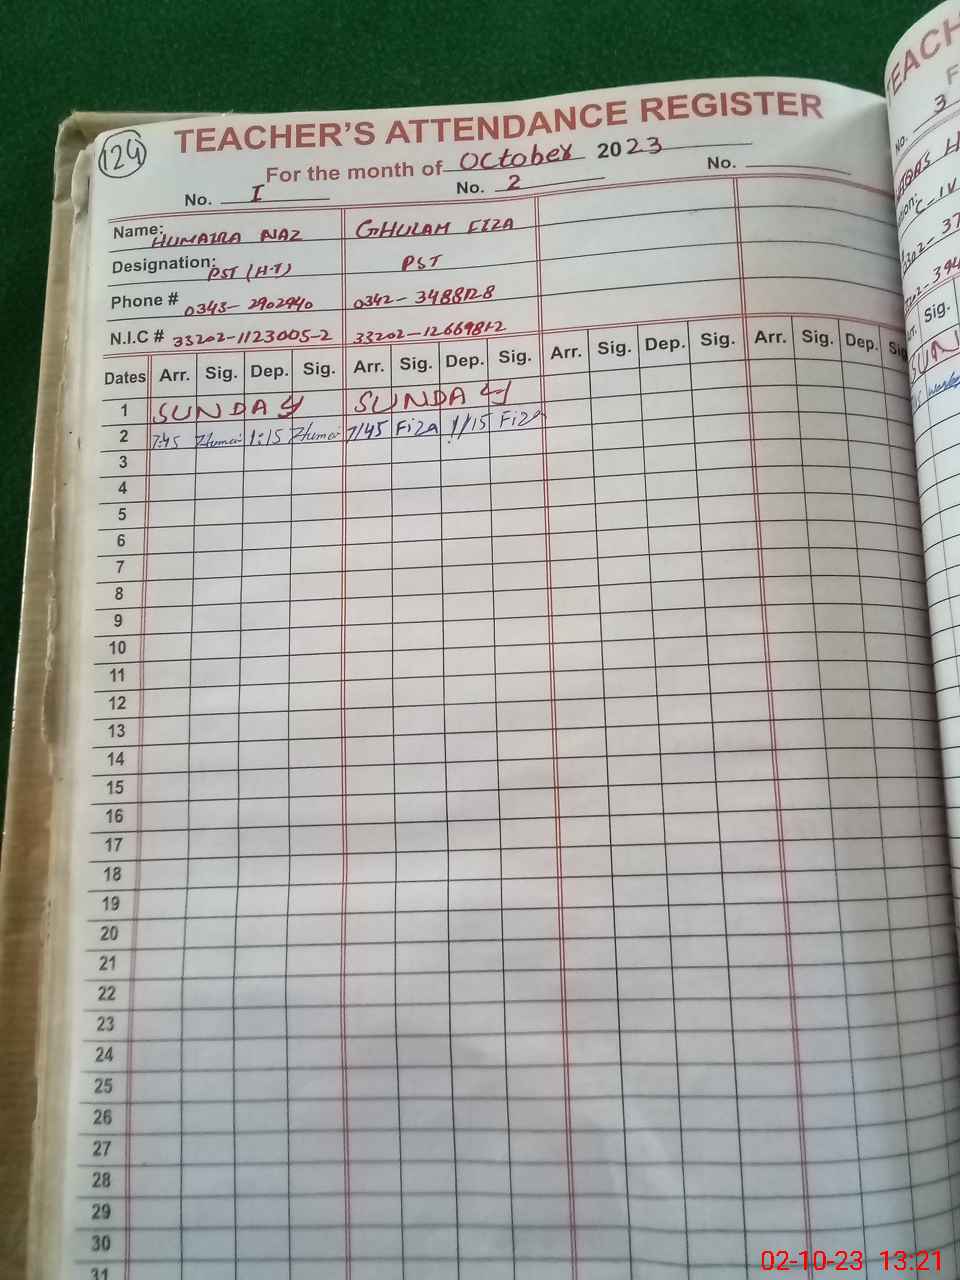 124
TEACHER'S ATTENDANCE REGISTER
For the month of October 2023
No. I No. 2 No.
Name: HUMAIRA NAZ GHULAM FIZA
Designation: PST (H.T) PST
Phone # 0343-2902940 0342-3488128
N.I.C # 33202-1123005-2 33202-1266981-2
Dates Arr. Sig. Dep. Sig. Arr. Sig. Dep. Sig. Arr. Sig. Dep. Sig. Arr. Sig. Dep. Sig
1 SUNDAY SUNDAY
2 7:45 Humai 1:15 Humai 7/45 Fiza 1/15 Fiza
3
4
5
6
7
8
9
10
11
12
13
14
15
16
17
18
19
20
21
22
23
24
25
26
27
28
29
30
31
TEACH
No. 3
C-IV
Sig.
SUN
02-10-23 13:21